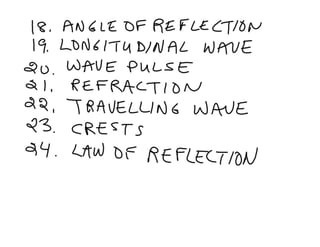 18. ANGLE OF REFLECTION
19. LONGITUDINAL WAVE
20. WAVE PULSE
21. REFRACTION
22. TRAVELLING WAVE
23. CRESTS
24. LAW OF REFLECTION